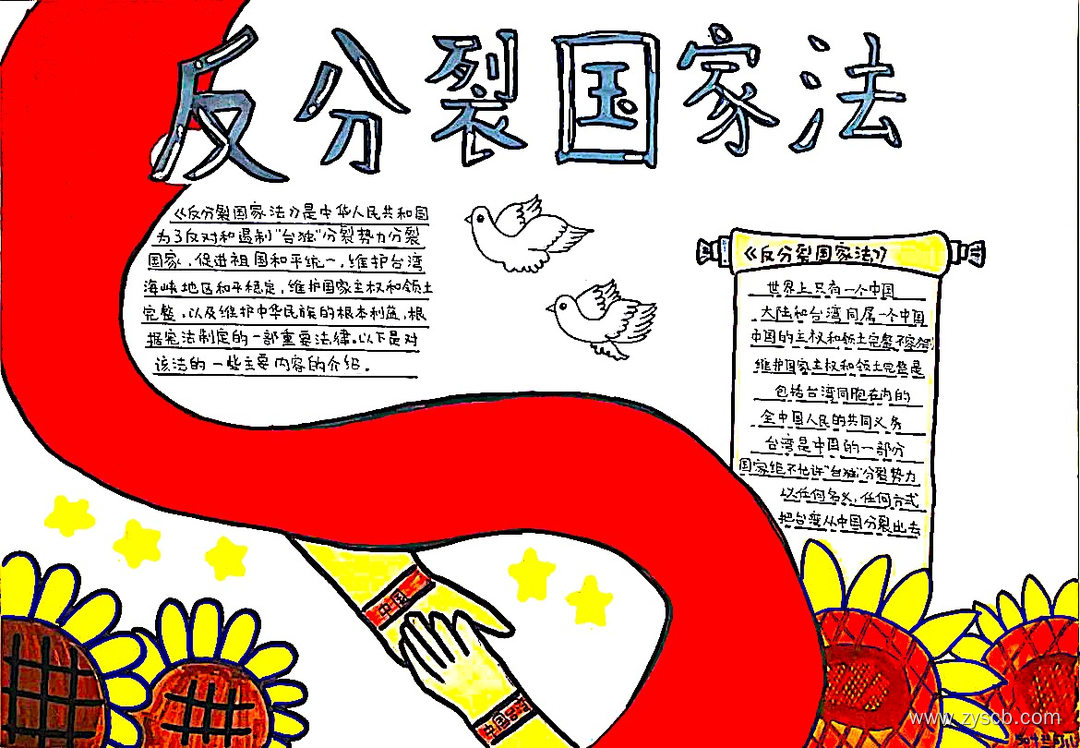 反分裂国家法
《反分裂国家法》是中华人民共和国
为了反对和遏制"台独"分裂势力分裂
国家，促进祖国和平统一，维护台湾
海峡地区和平稳定，维护国家主权和领土
完整，以及维护中华民族的根本利益，根
据宪法制定的一部重要法律。以下是对
该法的一些主要内容的介绍。
《反分裂国家法》
世界上只有一个中国
大陆和台湾同属一个中国
中国的主权和领土完整不容
维护国家主权和领土完整是
包括台湾同胞在内的
全中国人民的共同义务
台湾是中国的一部分
国家绝不允许"台独"分裂势力
以任何名义，任何方式
把台湾从中国分裂出去
中国
中国
www.zyscb.com